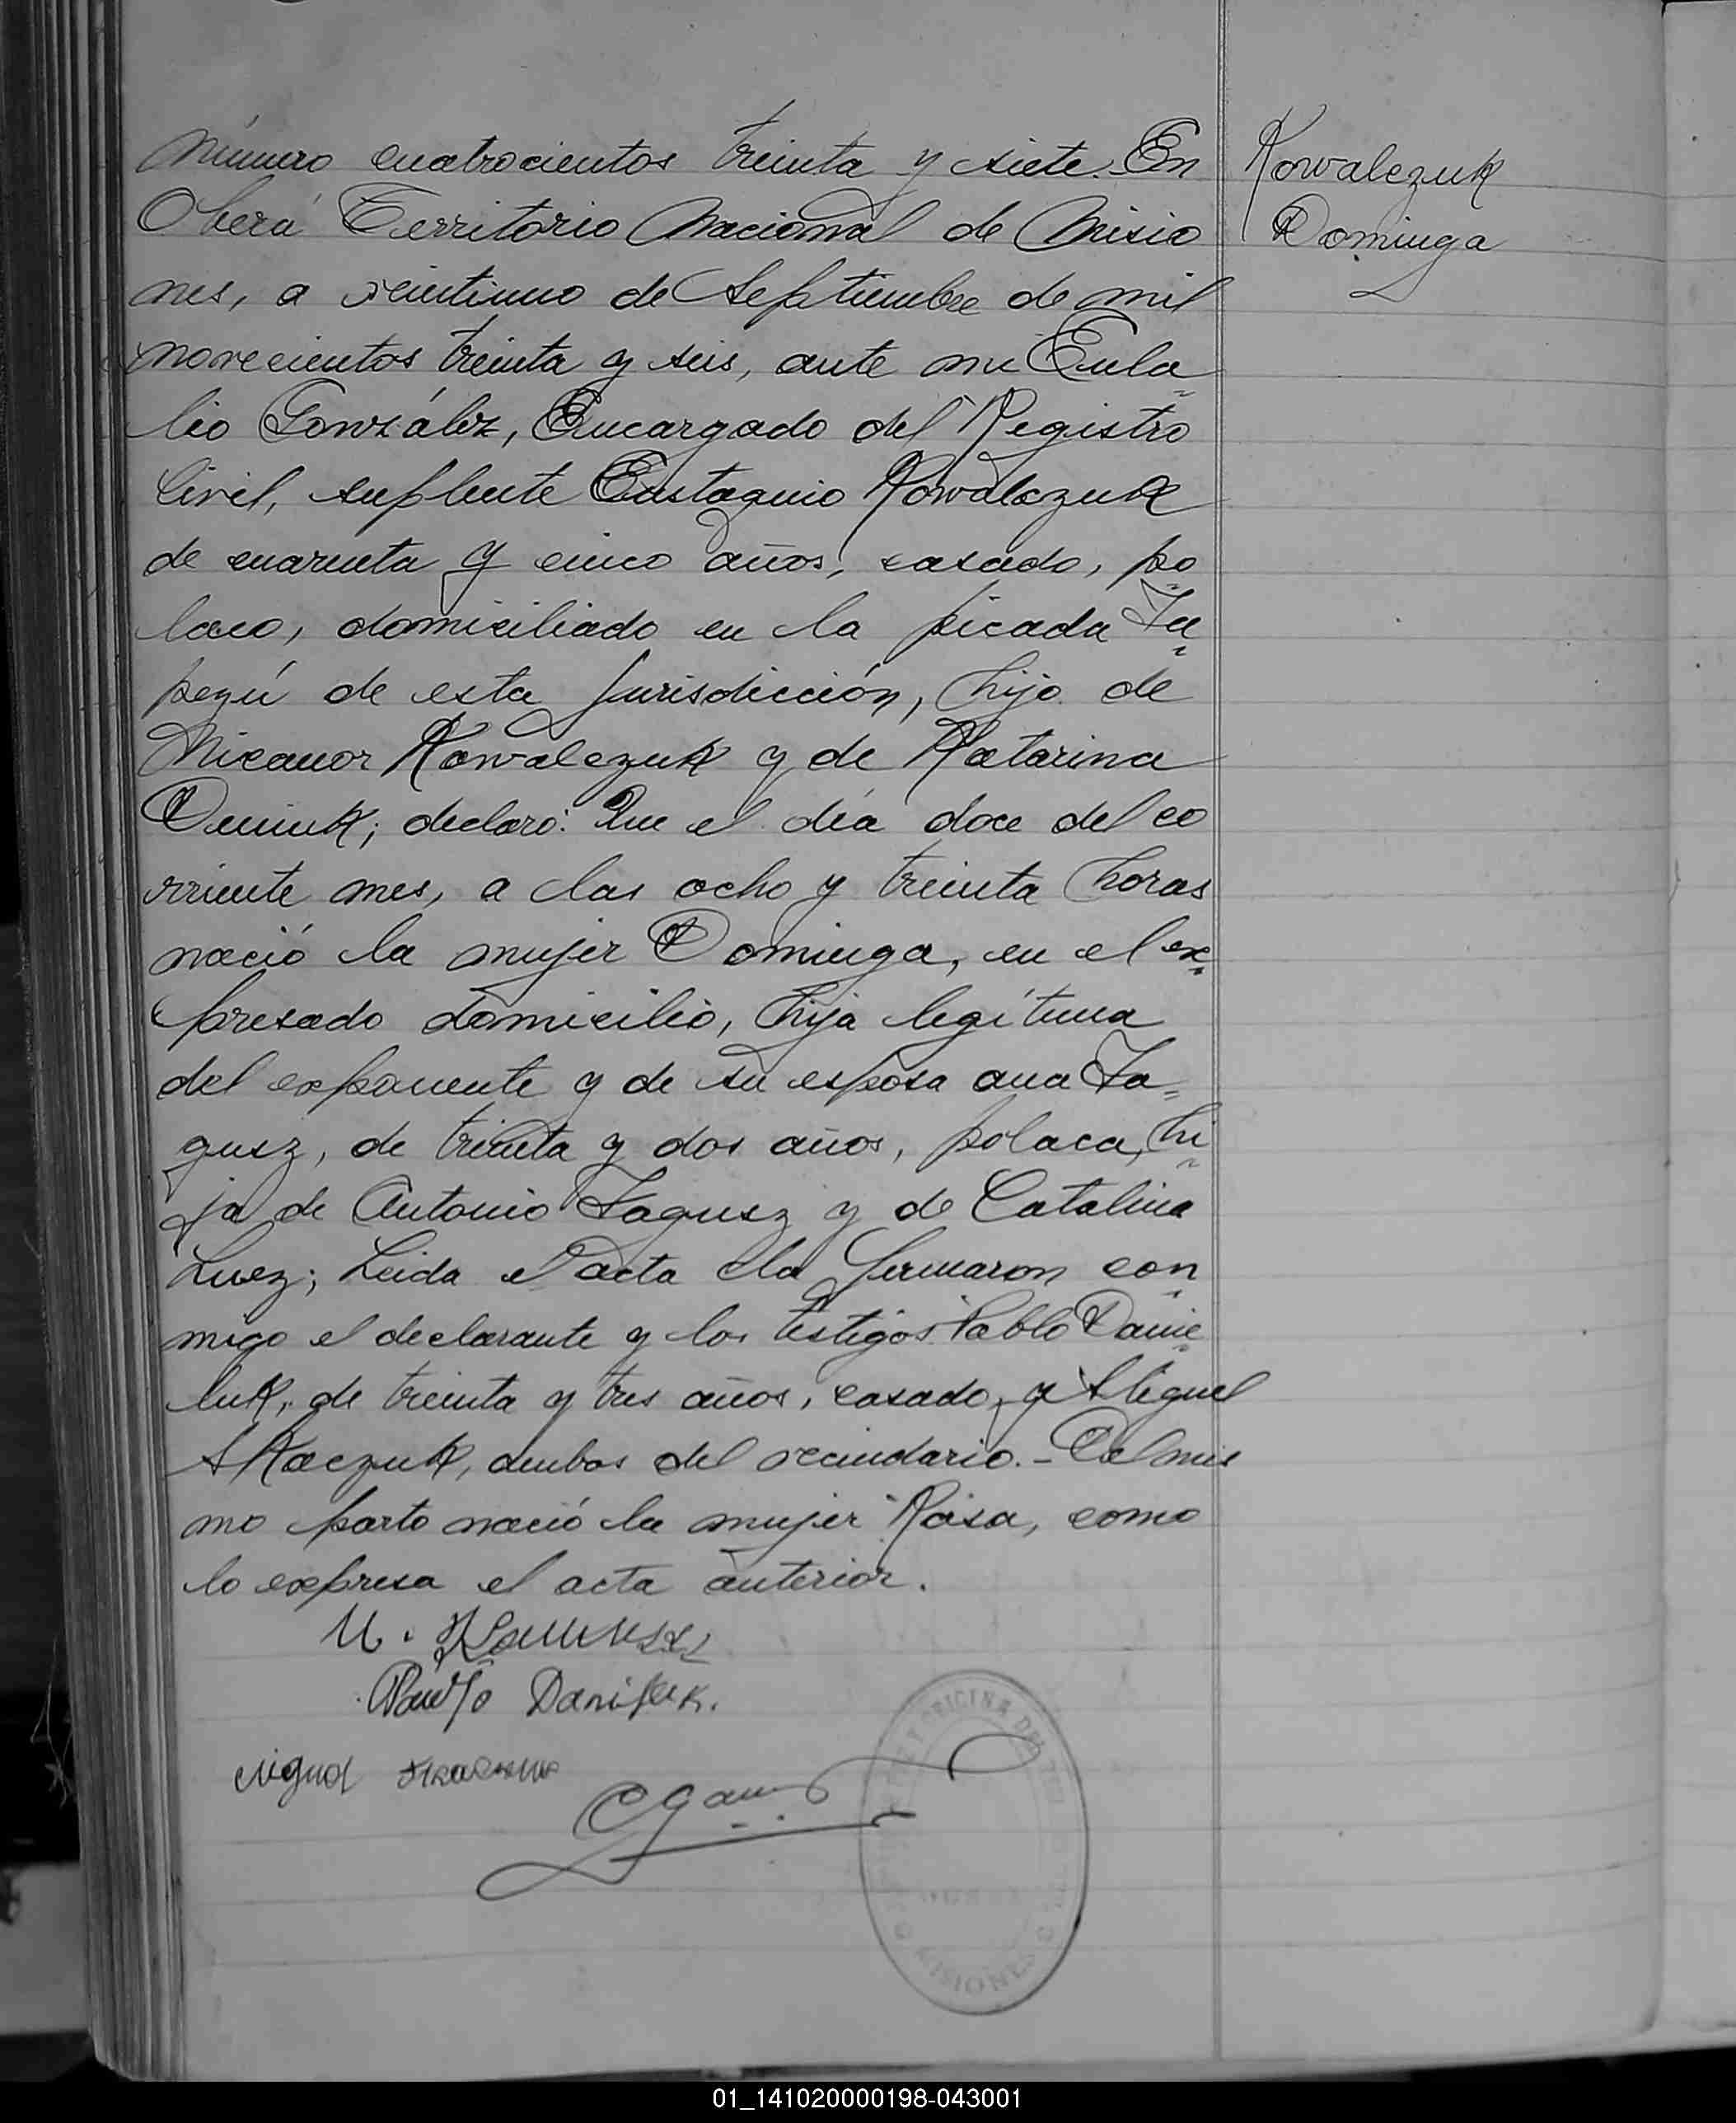 Número cuatrocientos treinta y siete. En
Oberá Territorio Nacional de Misio
nes, a veintiuno de Septiembre de mil
novecientos treinta y seis, ante mi Eula
lio González, Encargado del Registro
Civil, suplente Eustaquio Kowalczuk
de cuarenta y cinco años, casado, po
laco, domiciliado en la picada Ya
peyú de esta jurisdicción, hijo de
Nicanor Kowalczuk y de Katarina
declaró: Que el día doce del co
rriente mes, a las ocho y treinta horas
nació la mujer Dominga, en el ex
presado domicilio, hija legítima
del exponente y de su esposa ana
de treinta y dos años, polaca, hi
ja de Antonio y de Catalina
Leida el acta la firmaron con
migo el declarante y los testigos Pablo Danie
luk, de treinta y tres años, casado, y Miguel
Skaczuk, ambos del vecindario.- Del mis
mo parto nació la mujer Rosa, como
lo expresa el acta anterior.
Daniluk.
Kowalczuk
Dominga
MISIONES
01_141020000198-043001